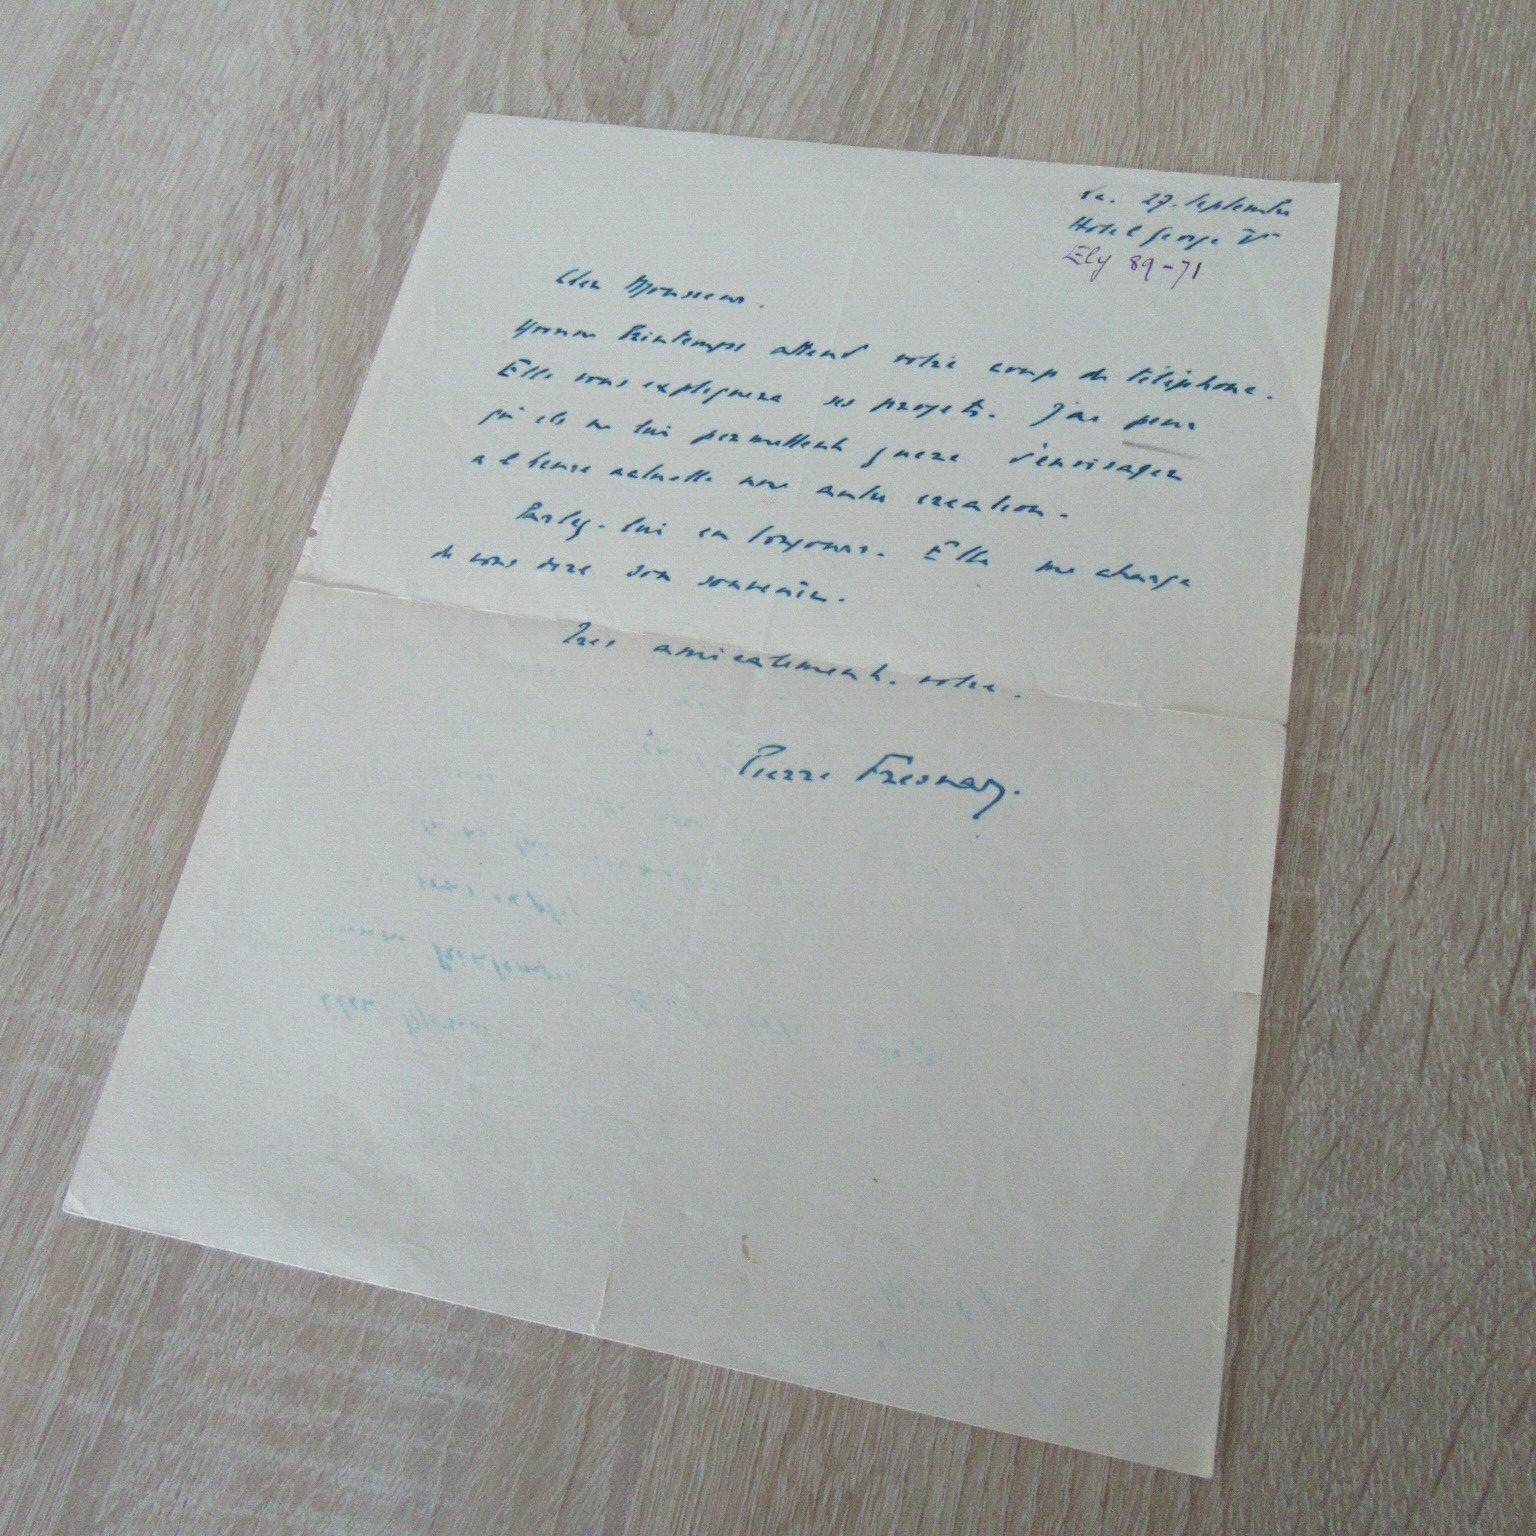 Ve. 27. Septembre
Hotel George V
Ely 89-71
Cher Monsieur.
Yvonne Printemps attend votre coup de téléphone.
Elle vous expliquera ses projets. J'ai peur
qu'ils ne lui permettent guere d'envisager
a l'heure actuelle une autre creation.
Parlez-lui en toujours. Elle me charge
de vous dire son souvenir.
Tres amicalement. votre.
Pierre Fresnay.